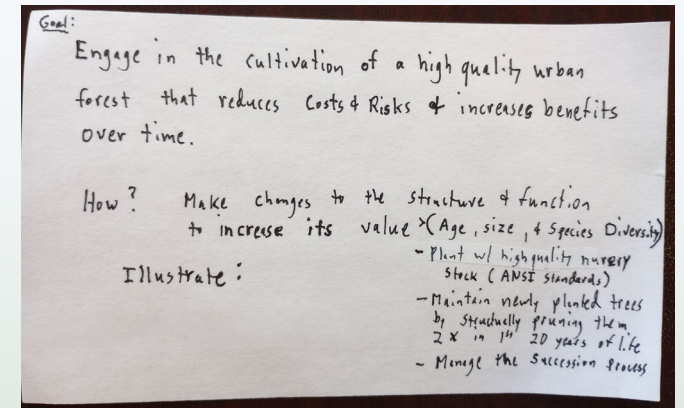 Goal:
Engage in the cultivation of a high quality urban
forest that reduces Costs & Risks & increases benefits
over time.
How? Make changes to the structure & function
to increase its value > (Age, size, & Species Diversity)
- Plant w/ high quality nursery
Stock (ANSI Standards)
Illustrate:
- Maintain newly planted trees
by structually pruning them
2 x in 1st 20 years of life
- Manage the Succession Process